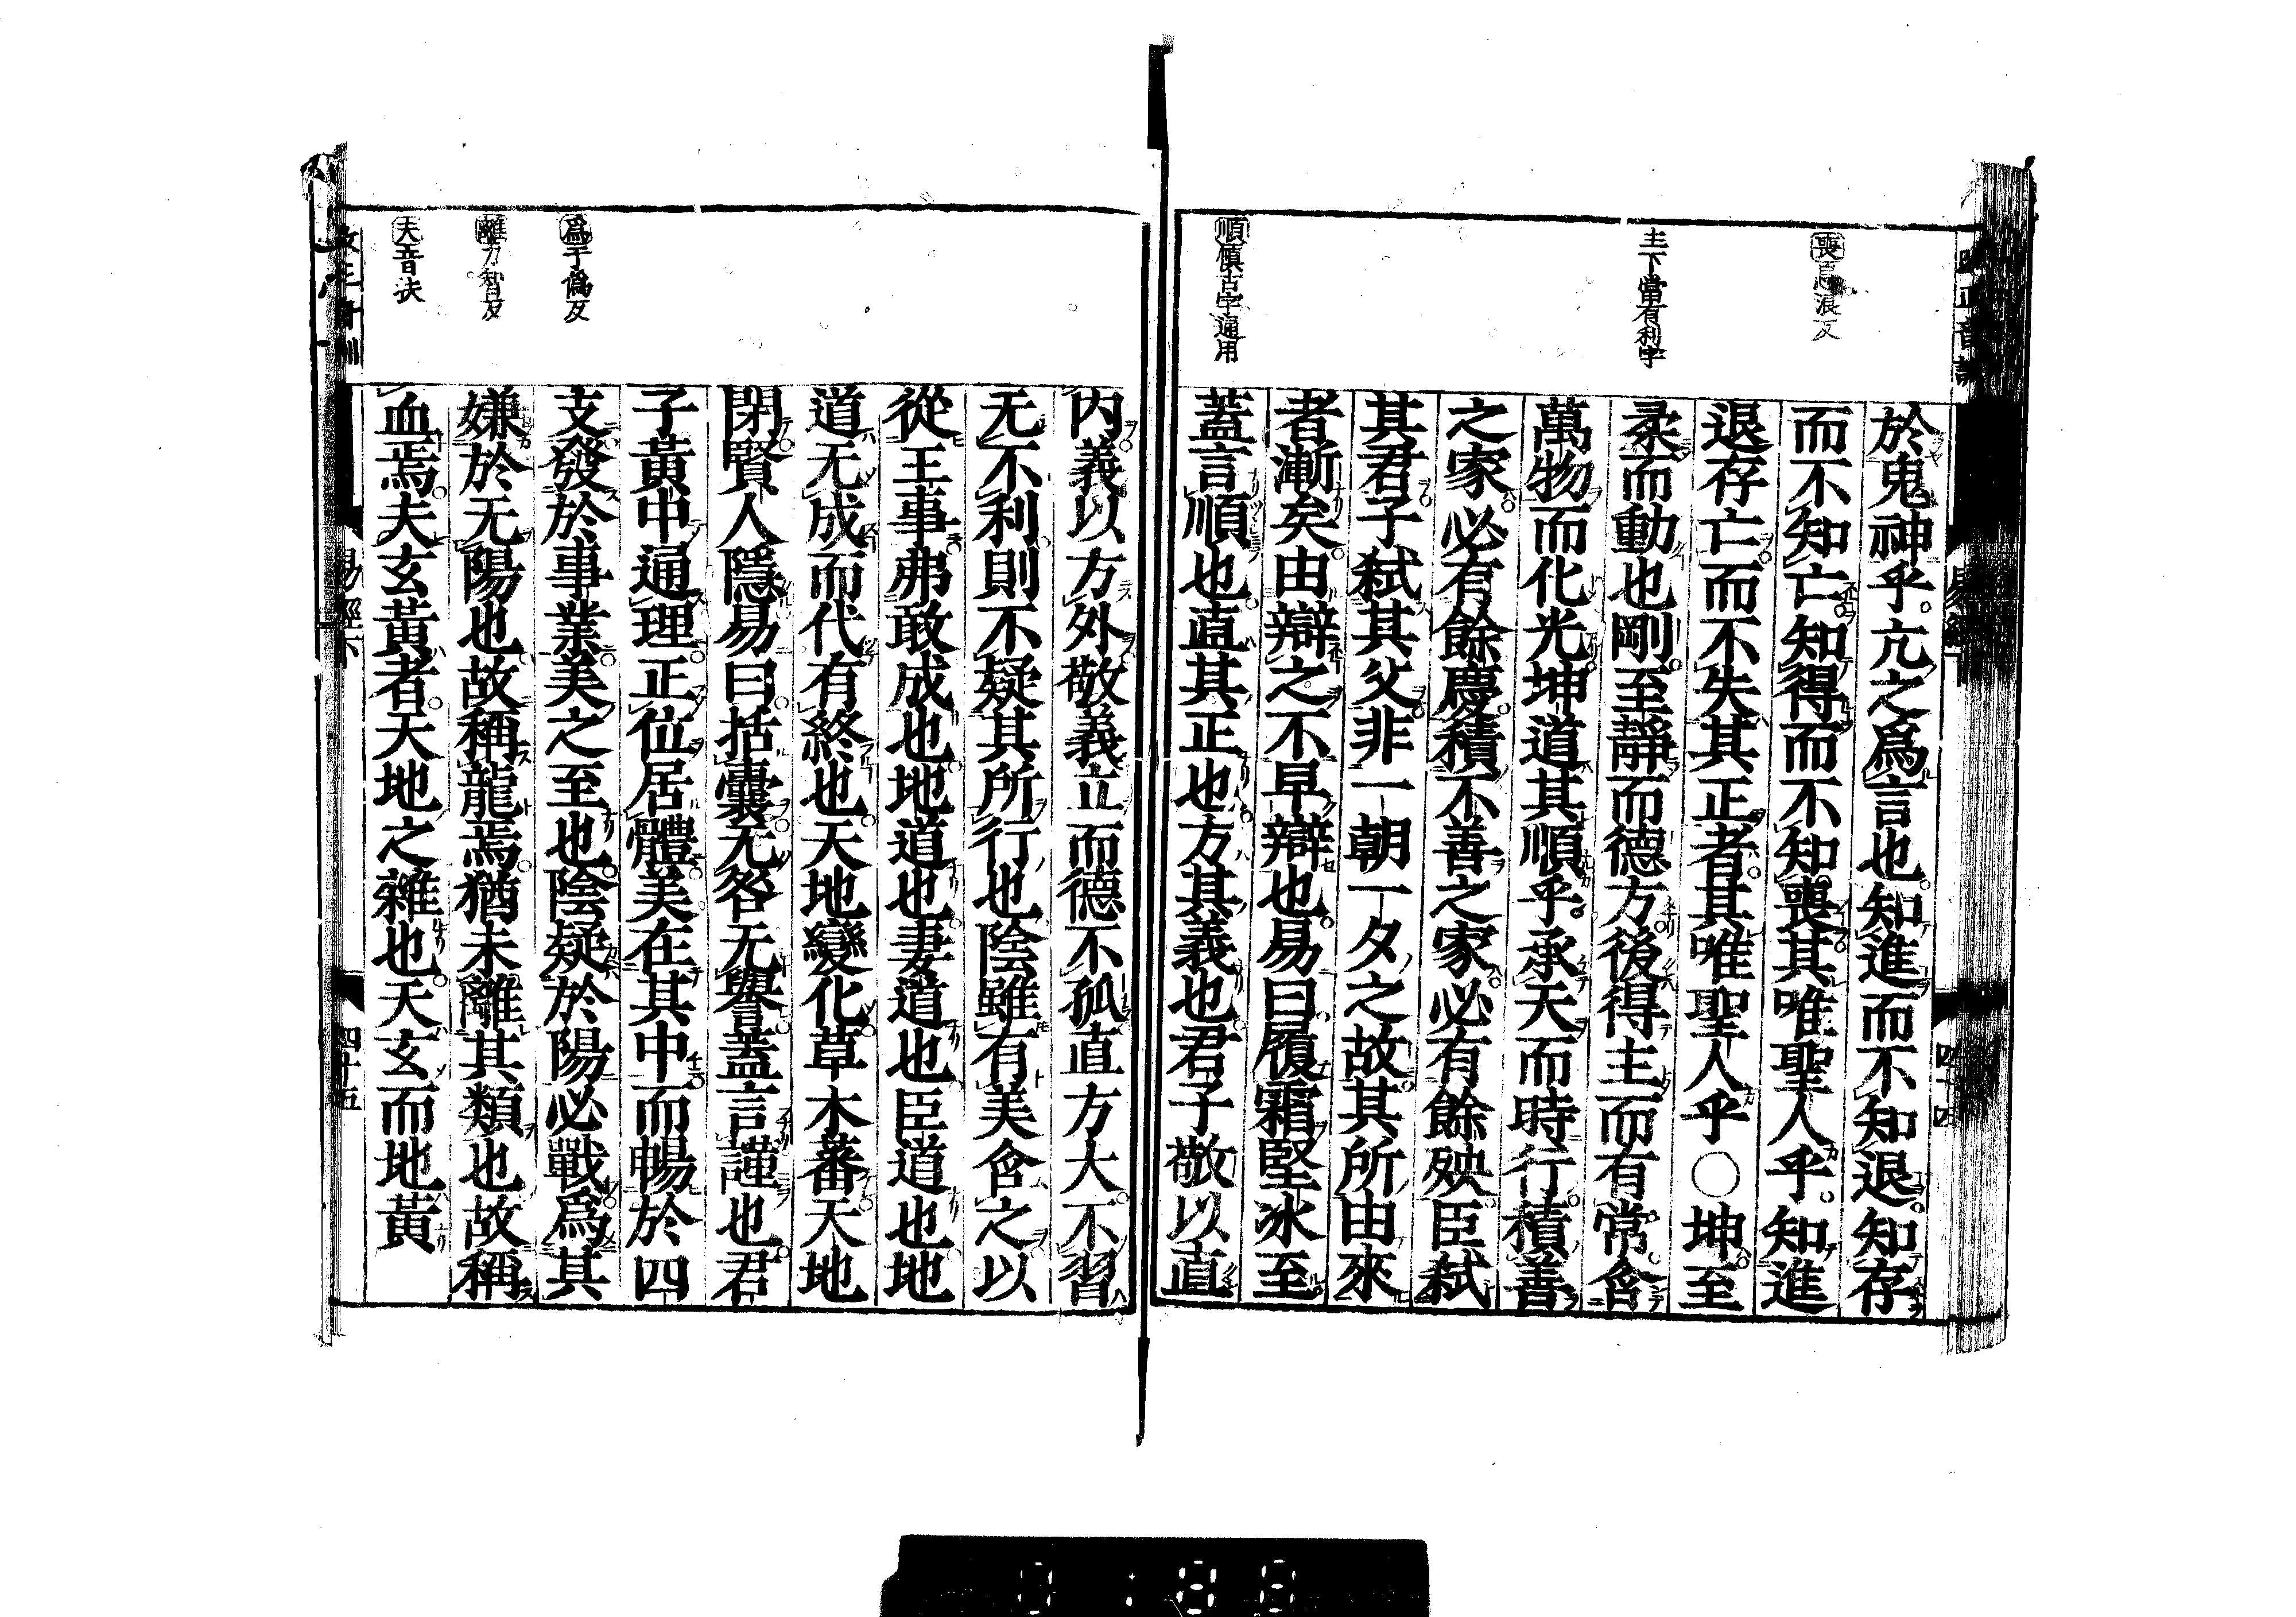 喪息浪反
主下當有利字
順慎古字通用
於鬼神乎。亢之爲言也。知進而不知退。知存
而不知亡。知得而不知喪。其唯聖人乎。知進
退存亡。而不失其正者。其唯聖人乎○坤至
柔而動也剛。至靜而德方。後得主而有常。含
萬物而化光。坤道其順乎。承天而時行。積善
之家。必有餘慶。積不善之家。必有餘殃。臣弑
其君。子弑其父。非一朝一夕之故。其所由來
者漸矣。由辯之不早辯也。易曰。履霜堅冰至。
蓋言順也。直其正也。方其義也。君子敬以直
易經下
四十四
爲于僞反
離力智反
夫音扶
内。義以方外。敬義立而德不孤。直方大。不習
无不利。則不疑其所行也。陰雖有美含之。以
從王事。弗敢成也。地道也。妻道也。臣道也。地
道无成。而代有終也。天地變化。草木蕃。天地
閉。賢人隱。易曰。括囊。无咎无譽。蓋言謹也。君
子黃中通理。正位居體。美在其中。而暢於四
支。發於事業。美之至也。陰疑於陽必戰。爲其
嫌於无陽也。故稱龍焉。猶未離其類也。故稱
血焉。夫玄黃者。天地之雜也。天玄而地黃
易經下
四十五